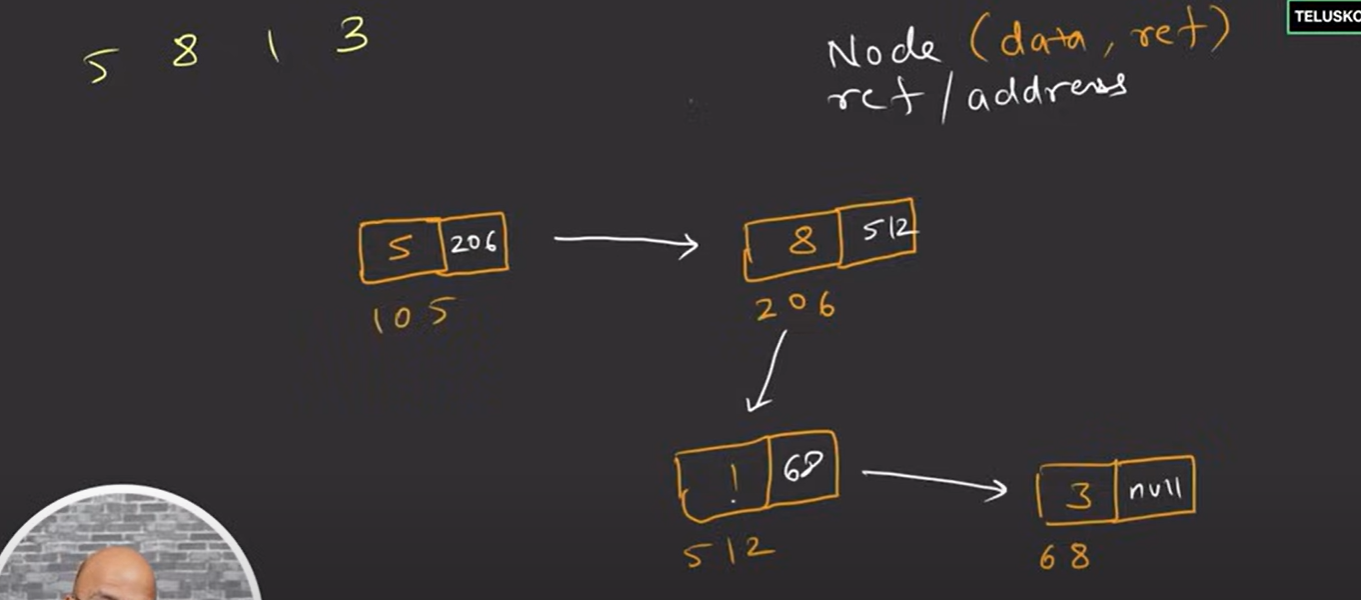 5 8 1 3
Node (data, ref)
ref/address
TELUSKO
5 206
105
8 512
206
! 68
512
3 null
68